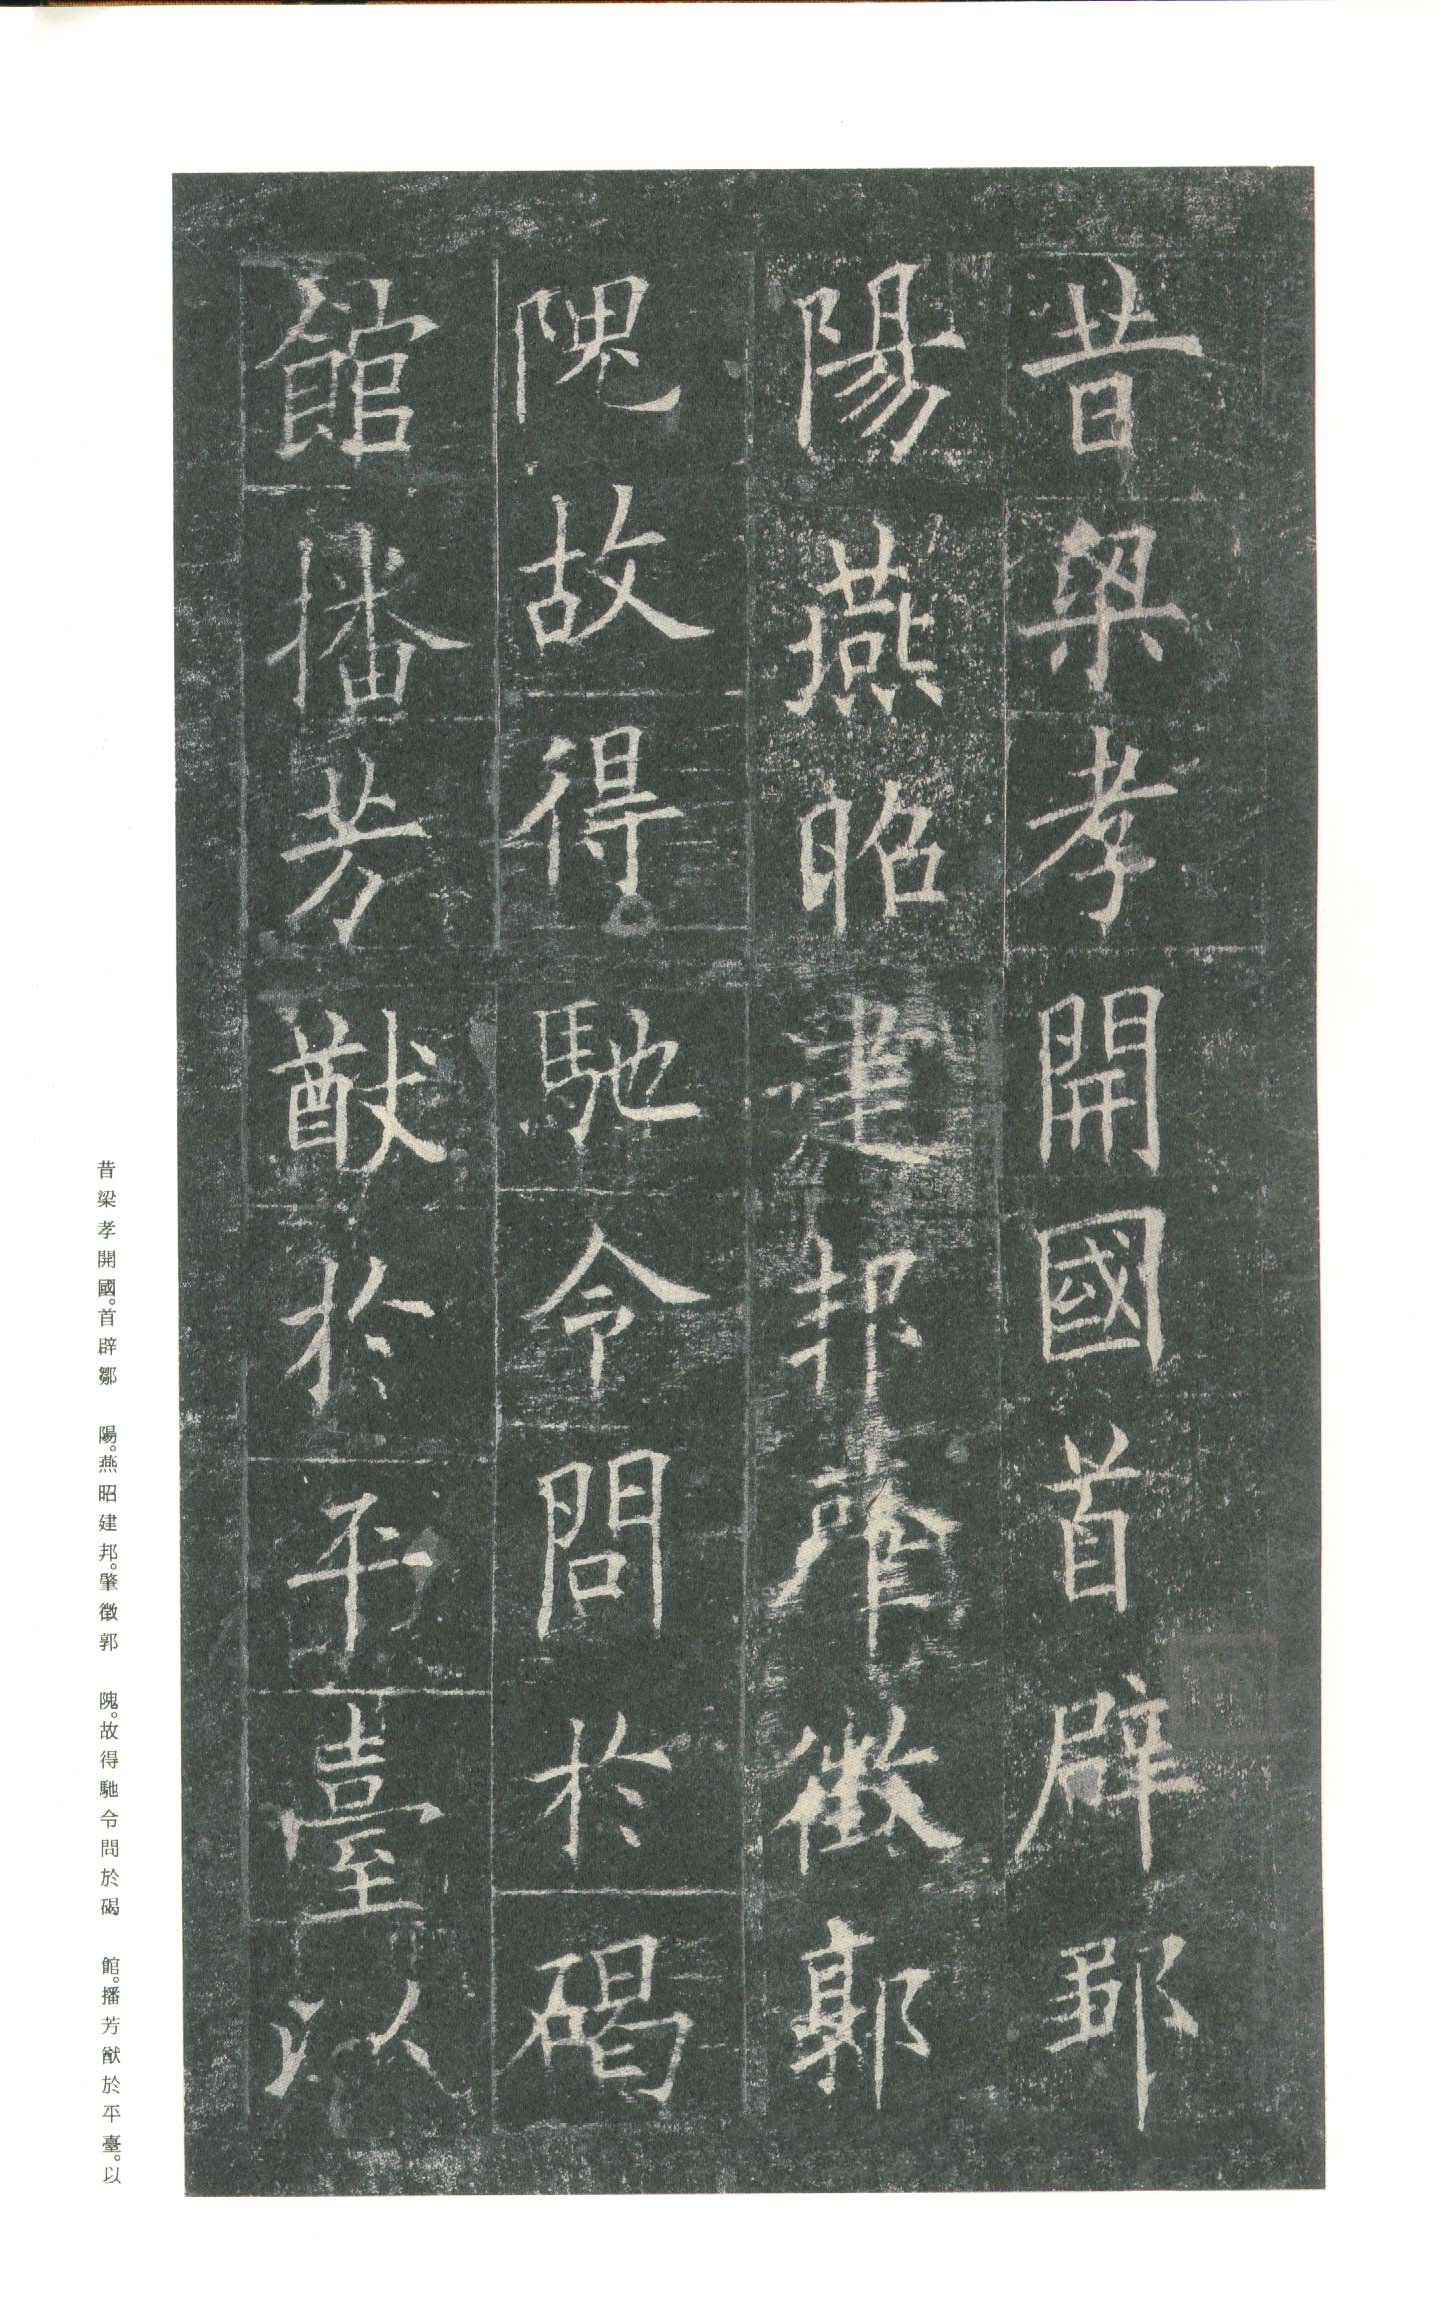 昔梁孝開國首辟鄒
陽燕昭建邦肇徵郭
隗故得馳令問於碣
館播芳猷於平臺以
昔梁孝開國。首辟鄒　陽。燕昭建邦。肇徵郭　隗。故得馳令問於碣　館。播芳猷於平臺。以